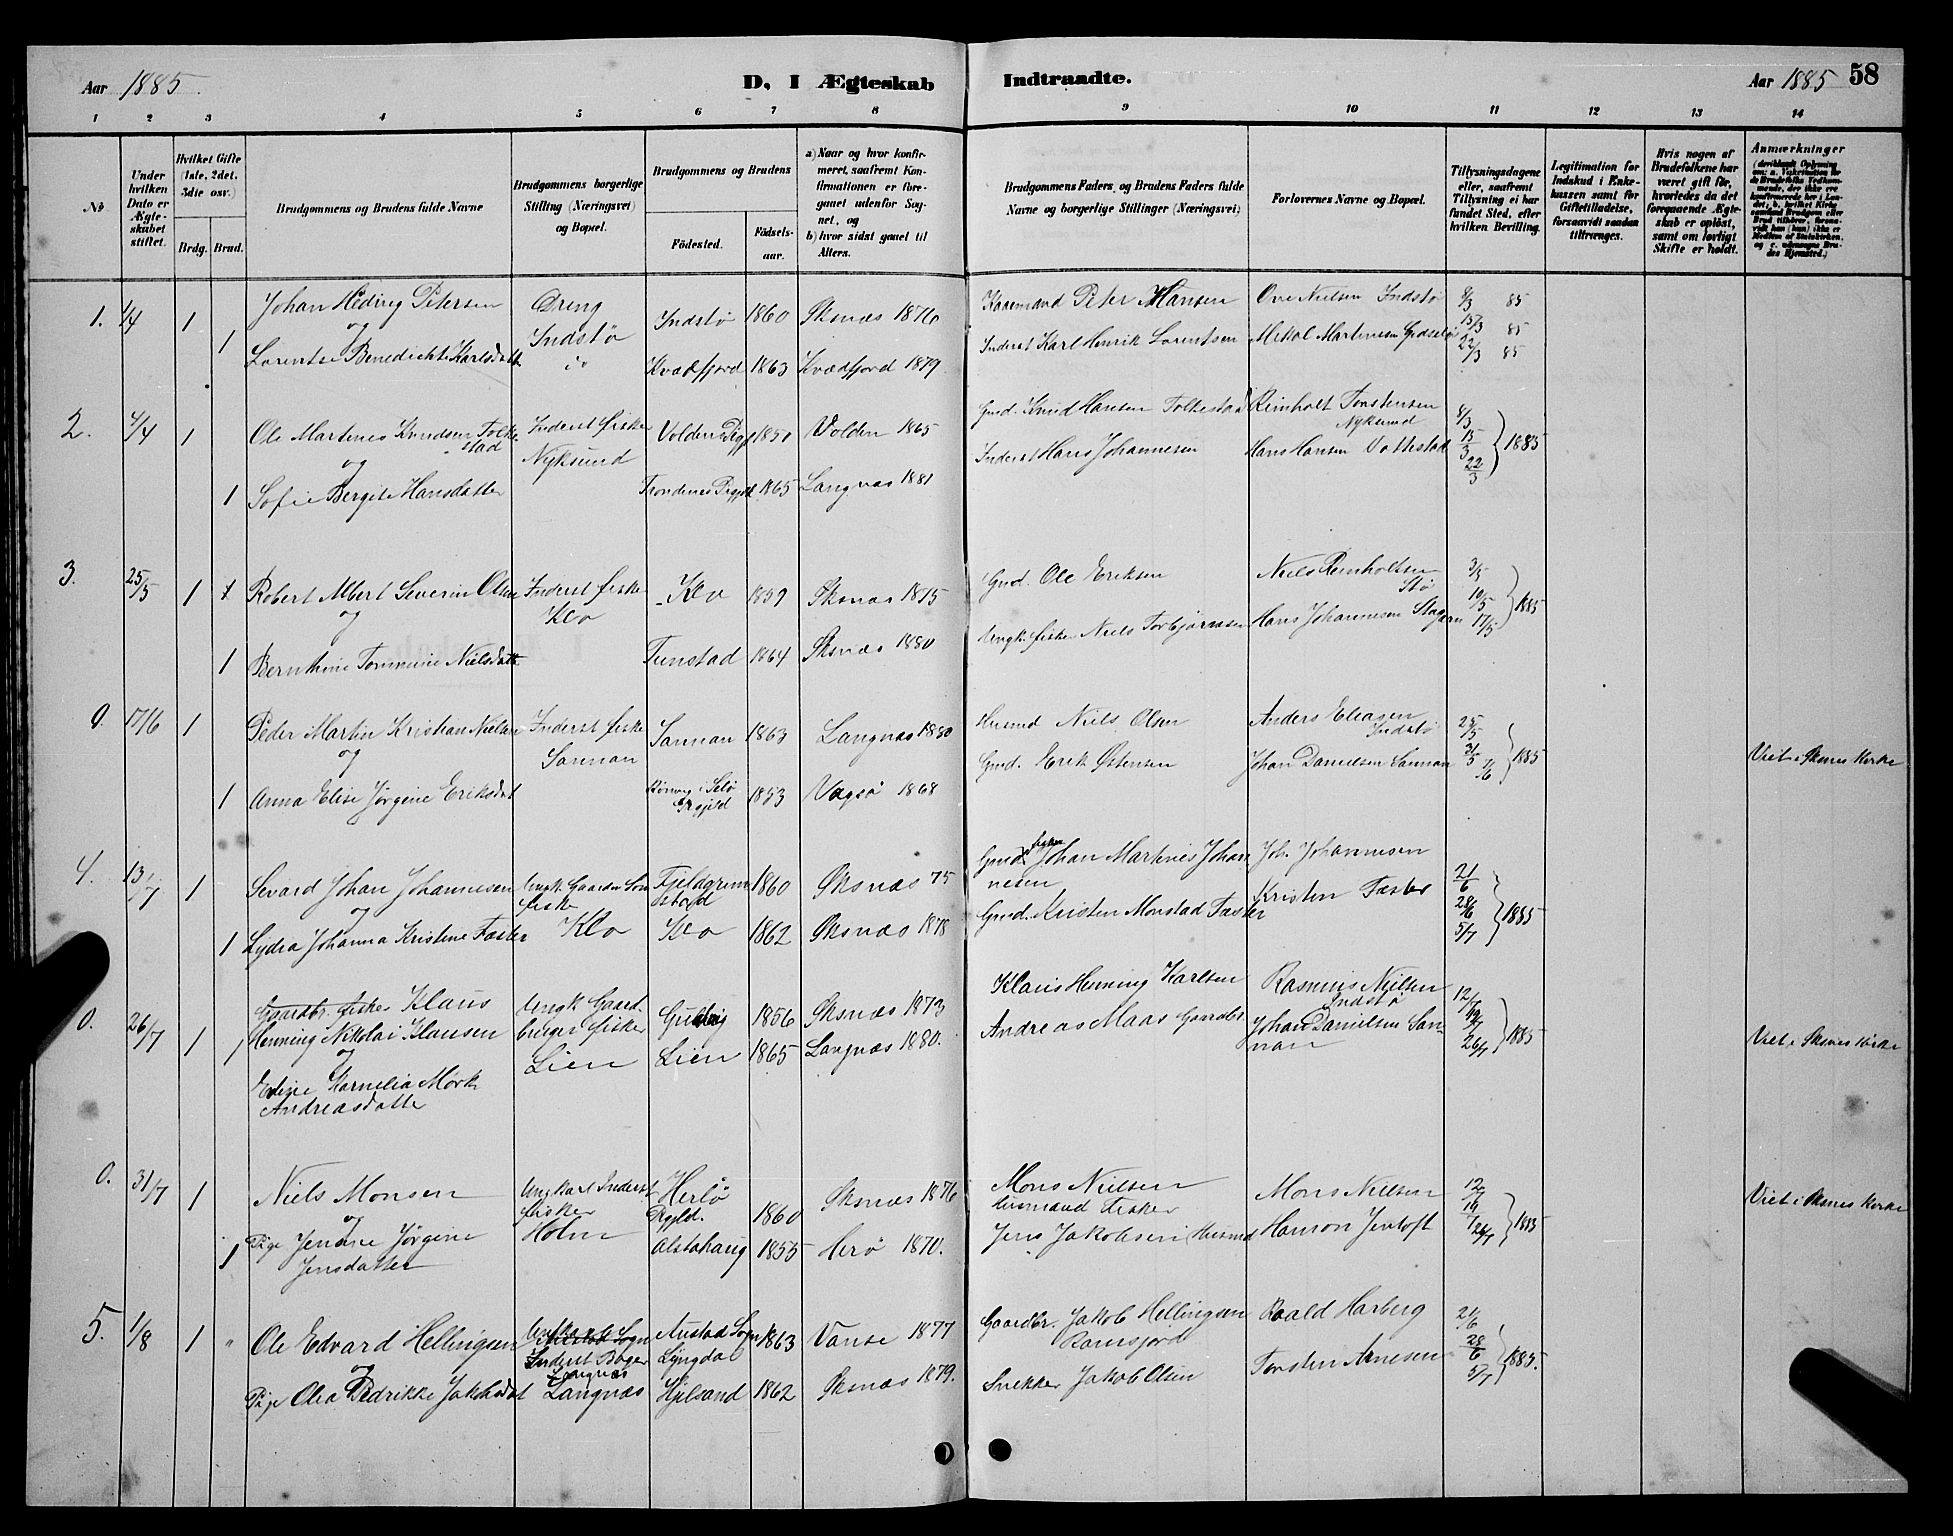 Aar 1885.
D, I Ægteskab
Indtraadte.
Aar 1885 58
1 2 3 4 5 6 7 8 9 10 11 12 13 14
No
Under hvilken Dato er Ægteskabet stiftet.
Hvilket Gifte (1ste, 2det, 3die osv.)
Brdg. Brud.
Brudgommens og Brudens fulde Navne
Brudgommens borgerlige Stilling (Næringsvei) og Bopæl.
Brudgommens og Brudens
Fødested. Fødselsaar.
a) Naar og hvor konfirmeret, saafremt Konfirmationen er foregaaet udenfor Sognet, og
b) hvor sidst gaaet til Alters.
Brudgommens Faders, og Brudens Faders fulde Navne og borgerlige Stillinger (Næringsvei)
Forlovernes Navne og Bopæl.
Tillysningsdagene eller, saafremt Tillysning ei har fundet Sted, efter hvilken Bevilling.
Legitimation for Indskud i Enkekassen samt for Giftetilladelse, forsaavidt saadan tiltrænges.
Hvis nogen af Brudefolkene har været gift før, hvorledes da det foregaaende Ægteskab er opløst, samt om lovligt Skifte er holdt.
Anmærkninger
1. 1/4 1 Johan Hedvig Petersen Dreng Indstø 1860 Øksnæs 1876 Peter Hansen Ove Nielsen Indstø 8/3 85
og Indstø
1 Lorentse Benedicthe Karlsdatt. Kvædfjord 1863 Kvædfjord 1879 Inderst Karl Henrik Lorentsen Mikal Martinesen 15/3 85
22/3 85
2. 4/4 1 Ole Martines Knudsen Folkestad Inderst fisker Volden 1851 Volden 1865 Gmd. Knud Hansen Folkestad Reinholt Torstensen Nyksund 8/3
og Nyksund 15/3 1885
1 Sofie Bergite Hansdatter Trondenes 1865 Langnæs 1881 Inderst Hans Johannesen Hans Hansen Vottestad 22/3
3. 25/5 1 Robert Albert Severin Olsen Inderst fisker Klo 1859 Øksnæs 1875 Gmd. Ole Eriksen Niels Reinholtsen Stø 3/5
og Klo 10/5 1885
1 Bernthine Tommine Nielsdatt. Tunstad 1864 Øksnæs 1880 Ungk. fisker Niels Torbjørnsen Hans Johannesen 17/5
0. 17/6 1 Peder Martin Kristian Nielsen Inderst fisker Sannan 1863 Langnæs 1880 Husmd Niels Olsen Anders Eliasen Indstø 25/5
og Sannan 31/5 1885
1 Anna Elise Jørgine Eriksdat 1853 Vagsø 1868 Gmd. Erik Østensen Johan Danielsen Sannan 7/6 Viet i Øksnes Kirke
4. 13/7 1 Sevard Johan Johannesen Ungk Gaardm Søn fisker Fjeldgrimstad 1860 Øksnæs 75 Gmd. fisker Johan Martines Johannesen Joh. Johannesen 21/6
og Klo 28/6 1885
1 Lydia Johanna Kristine Fæster Klo 1862 Øksnæs 1878 Gmd. Kristen Monstad Fæster Kristen Fæster 5/7
0. 26/7 1 Gaardbr. fisker Klaus Henning Nikolai Klausen Ungk Gaardbruger fisker 1856 Øksnæs 1873 Klaus Henning Karlsen Rasmus Nielsen Indstø 12/7
og Lien 19/7 1885
1 Edine Kornelia Mørk Andreasdatte Lien 1865 Langnæs 1880. Andreas Maas Gaardbr. Johan Danielsen Sannan 26/7 Viet i Øksnes Kirke
0. 31/7 1 Niels Monsen Ungkarl Inderst fisker Herlø Pgjld. 1860 Øksnæs 1876 Mons Nielsen Husmand Fisker Mons Nielsen 12/7
og Holm 19/7 1885
1 Pige Jensine Jørgine Jensdatter Alstahaug 1855 Herø 1870. Jens Jakobsen Husmd Hanson Jentoft 26/7 Viet i Øksnes Kirke
5. 1/8 1 Ole Edvard Hellingsen Austad Sogn Lyngdal 1863 Vanse 1877 Gaardbr. Jakob Hellingsen Roald Harberg 21/6
og Inderst Langnæs 28/6 1885.
Pige Olea Pedrikke Jakobsdat Langnæs Hjelsand 1862 Øksnæs 1879. Snekker Jakob Olsen Torsten Arnesen 5/7